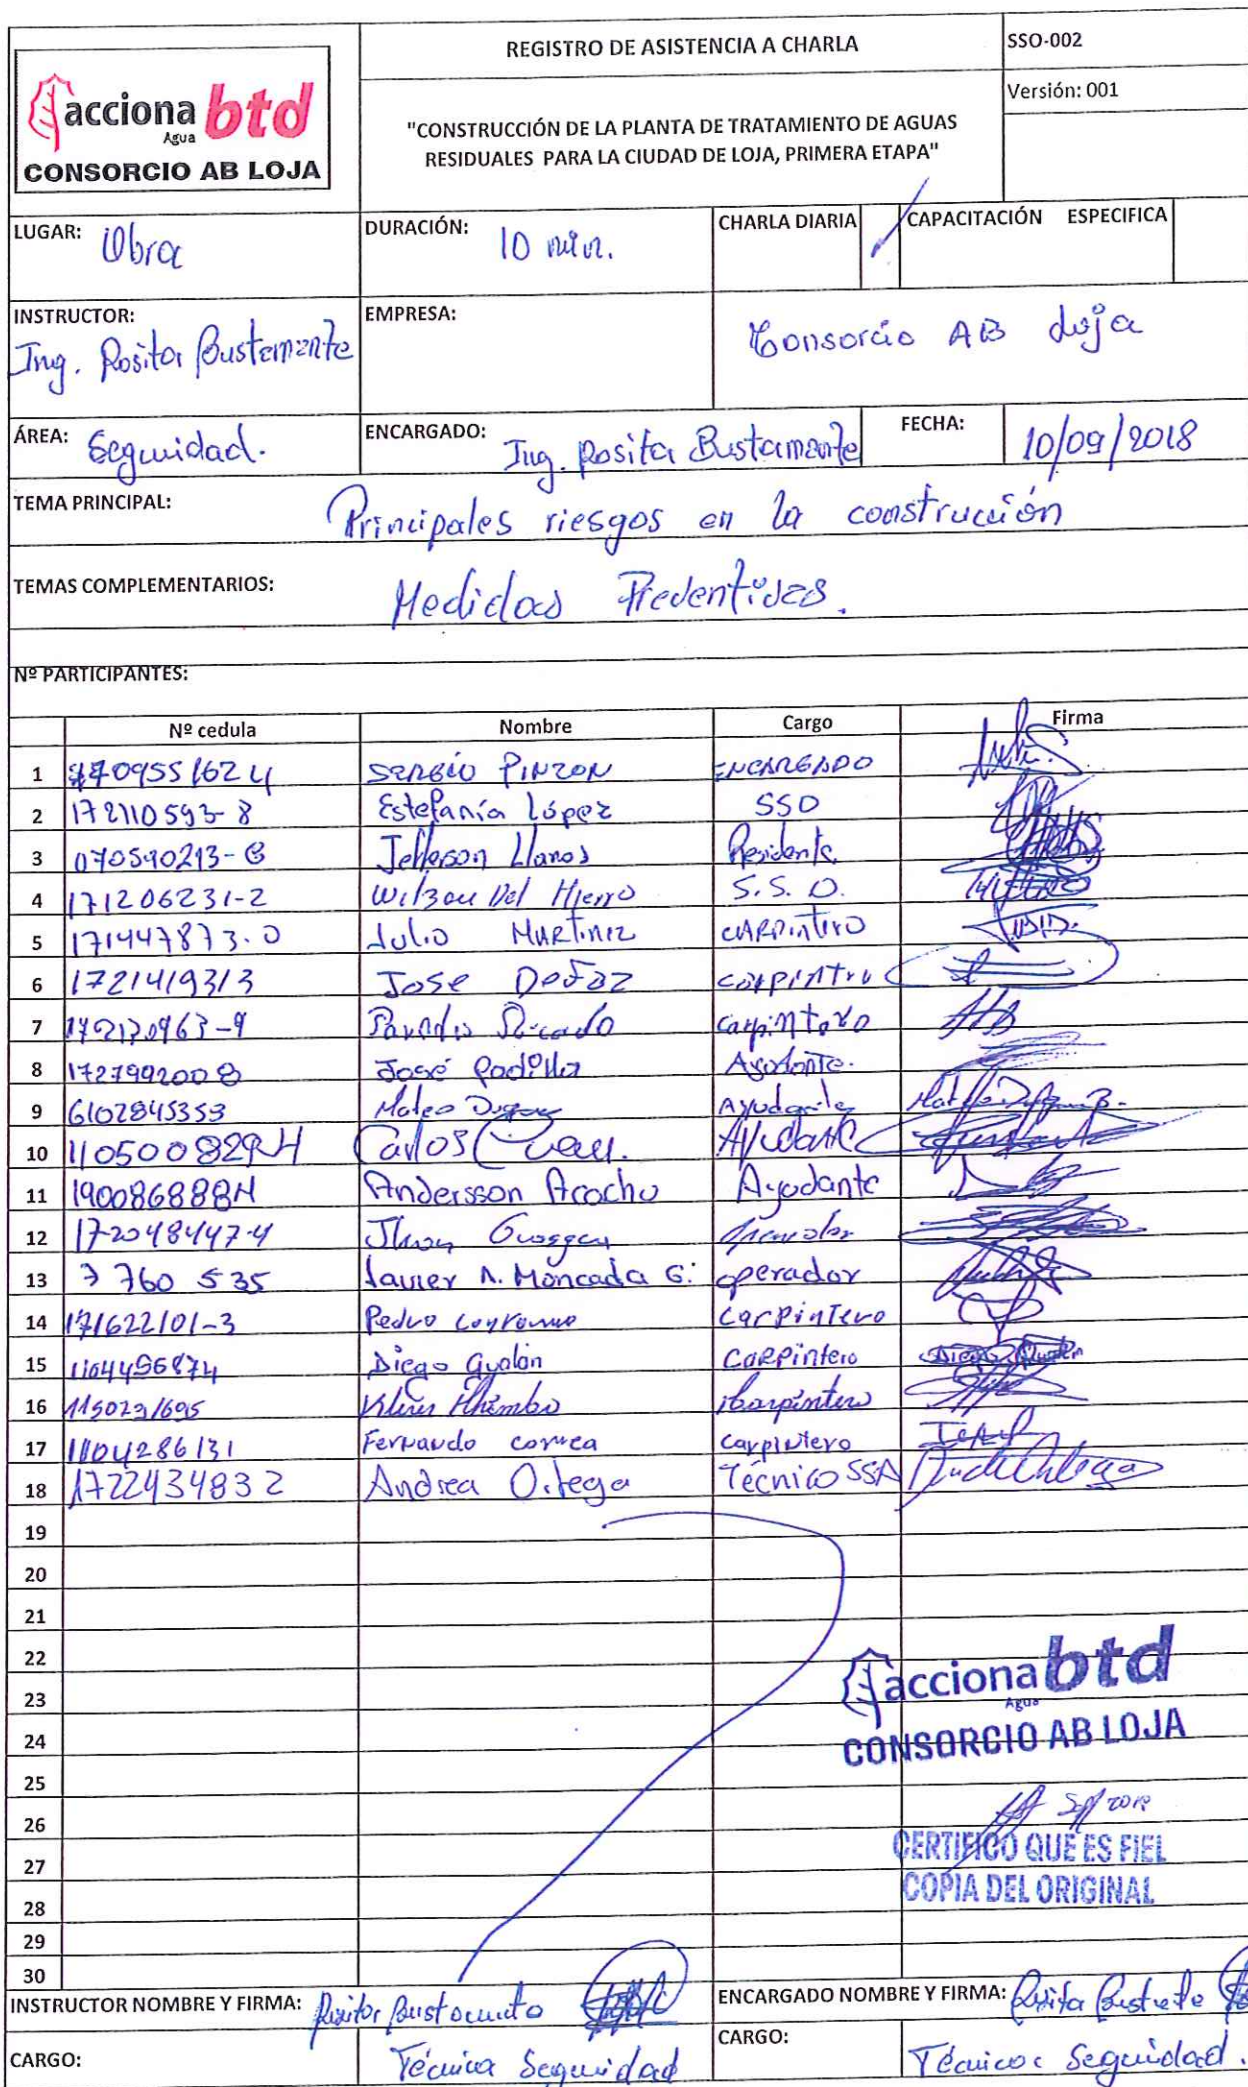 acciona btd
Agua
CONSORCIO AB LOJA
REGISTRO DE ASISTENCIA A CHARLA
SSO-002
Versión: 001
"CONSTRUCCIÓN DE LA PLANTA DE TRATAMIENTO DE AGUAS
RESIDUALES PARA LA CIUDAD DE LOJA, PRIMERA ETAPA"
LUGAR: Obra
DURACIÓN: 10 min.
CHARLA DIARIA ✓
CAPACITACIÓN ESPECIFICA
INSTRUCTOR:
Ing. Rosita Bustamante
EMPRESA: Consorcio AB Loja
ÁREA: Seguridad.
ENCARGADO: Ing. Rosita Bustamante
FECHA: 10/09/2018
TEMA PRINCIPAL: Principales riesgos en la construcción
TEMAS COMPLEMENTARIOS: Medidas Preventivas.
Nº PARTICIPANTES:
Nº cedula Nombre Cargo Firma
1 SERGIO PINZON ENCARGADO
2 172110593-8 Estefanía López SSO
3 Jefferson Llanos Residente
4 171206231-2 Wilson Del Hierro S.S.O.
5 171447873-0 Julio MARTINEZ CARPINTIRO
6 1721419313 Jose carpintru
7 carpintero
8 1727992008 José Padilla Ayudante.
9 6102845353 Mateo Ayudante
10 Carlos Ayudante
11 190086888 Andersson Aracho Ayudante
12 172048447-4
13 7760535 Javier A. Moncada G. operador
14 171622101-3 Pedro Carpintero
15 1104456874 Diego Gualan Carpintero
16 carpintero
17 1104286131 Fernando correa carpintero
18 1722434832 Andrea Ortega Técnico SSA
19
20
21
22
23
24
25
26
27
28
29
30
acciona btd
Agua
CONSORCIO AB LOJA
CERTIFICO QUE ES FIEL
COPIA DEL ORIGINAL
INSTRUCTOR NOMBRE Y FIRMA: Rosita
ENCARGADO NOMBRE Y FIRMA: Rosita
CARGO: Técnica Seguridad
CARGO: Técnica Seguridad.